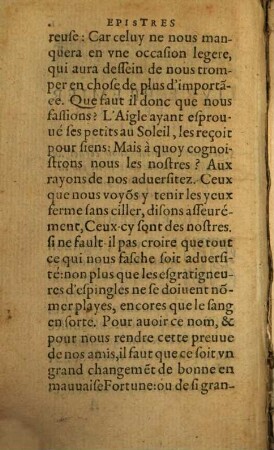 EPISTRES
reuse: Car celuy ne nous man-
quera en vne occasion legere,
qui aura dessein de nous trom-
per en chose de plus d'importã-
ce. Que faut il donc que nous
fassions? L'Aigle ayant esprou-
ué ses petits au Soleil, les reçoit
pour siens: Mais à quoy cognoi-
strons nous les nostres? Aux
rayons de nos aduersitez. Ceux
que nous voyõs y tenir les yeux
ferme sans ciller, disons asseuré-
ment, Ceux-cy sont des nostres.
si ne fault-il pas croire que tout
ce qui nous fasche soit aduersi-
té: non plus que les esgratigneu-
res d'espingles ne se doiuent nõ-
mer playes, encores que le sang
en sorte. Pour auoir ce nom, &
pour nous rendre cette preuue
de nos amis, il faut que ce soit vn
grand changemẽt de bonne en
mauuaise Fortune: ou de si gran-